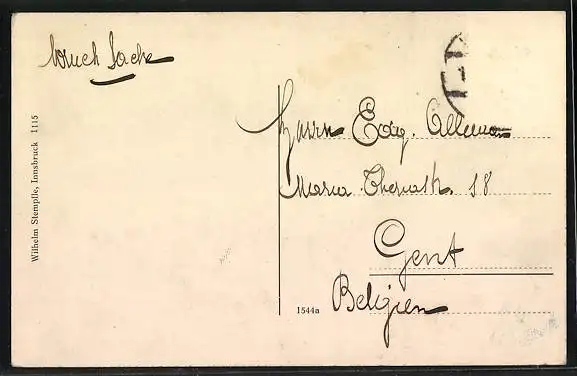 Druck Sache
Wilhelm Stempfle, Innsbruck 1115
Herrn
Maria Theriastr. 18
Gent
Belgien
1544a